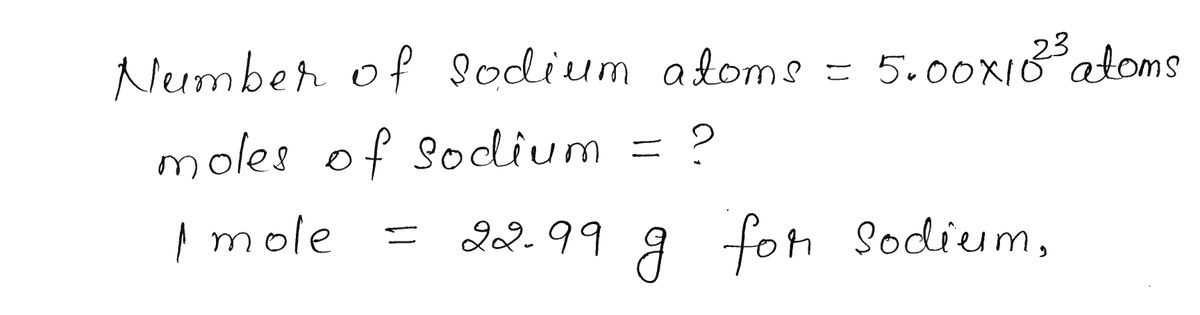 Number of sodium atoms = 5.00x10²³ atoms
moles of sodium = ?
1 mole = 22.99 g for sodium,